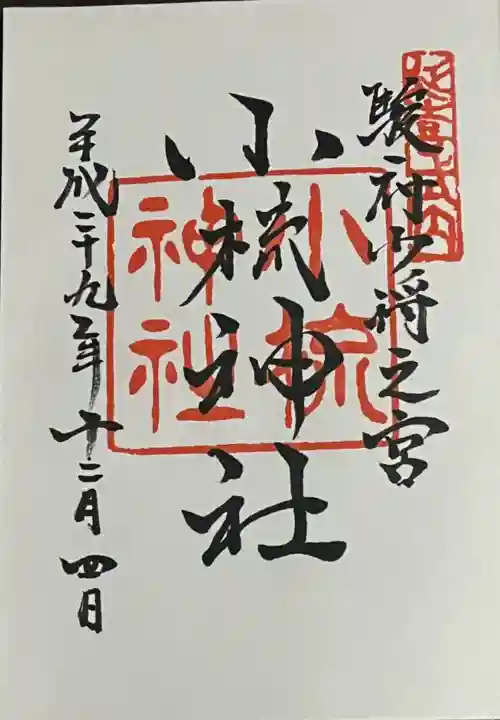 駿府少将之宮
小梳神社
小梳
神社
平成二十九年十二月四日